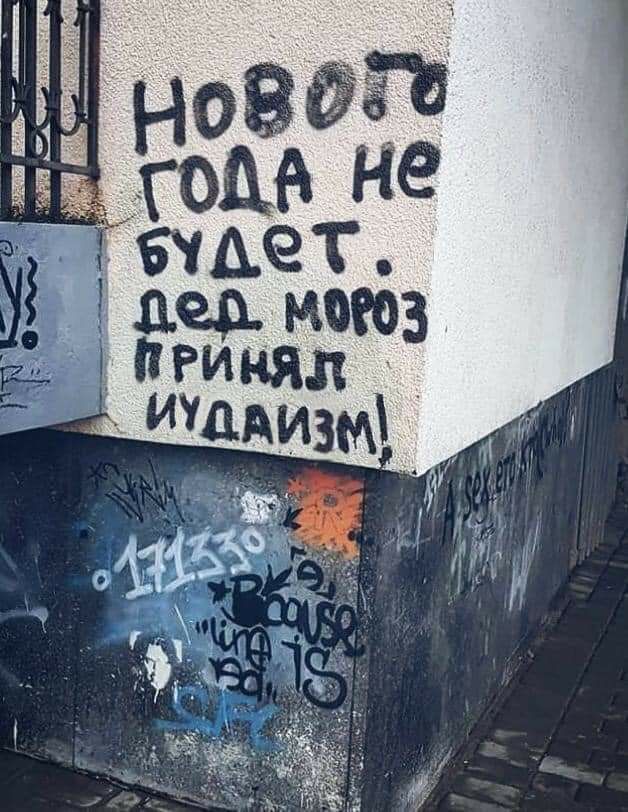 НОВОГО
ГОДА НЕ
БУДЕТ.
ДЕД МОРОЗ
ПРИНЯЛ
ИУДАИЗМ!
171330
Because
"line
is
red"